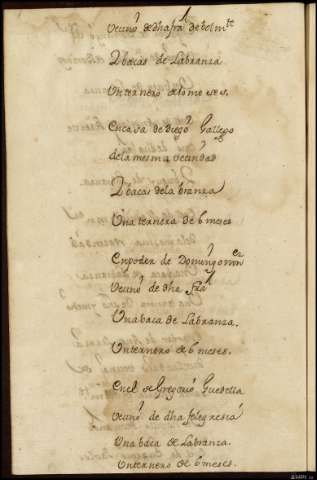 Vecunº de dha fra de Belmte
2 bacas de Labranza
Un ternero de ocho meses.
En casa de diegº Gallego
de la mesma vecindad
2 bacas de labranza
Una ternera de 6 meses
En poder de Domingo
Vecunº de dha fra
Una baca de Labranza.
Un ternero de 6 meses.
En el de Gregorio
Vecunº de dha feligresia
Una baca de Labranza.
Un ternero de 6 meses.